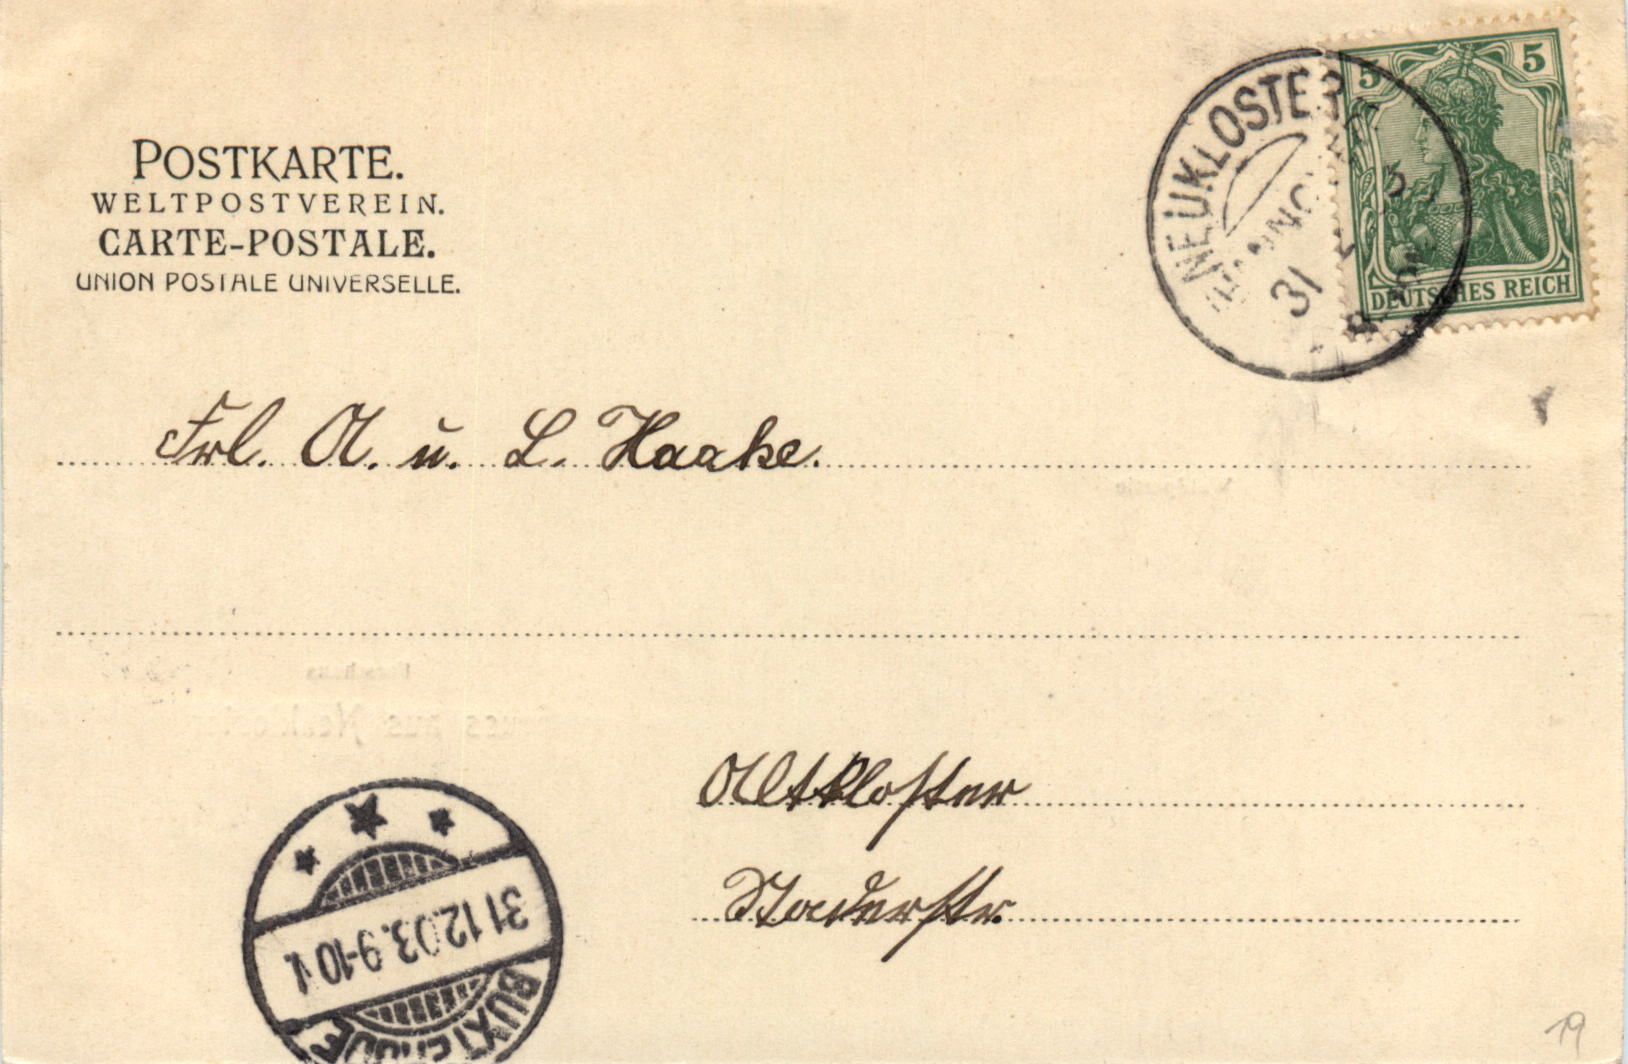 POSTKARTE.
WELTPOSTVEREIN.
CARTE-POSTALE.
UNION POSTALE UNIVERSELLE.
5 5
DEUTSCHES REICH
NEUKLOSTER
31
Frl. A. u. L. Haake.
Altkloster
Staderstr.
31 12.03. 9-10 V.
BUXTEHUDE
19